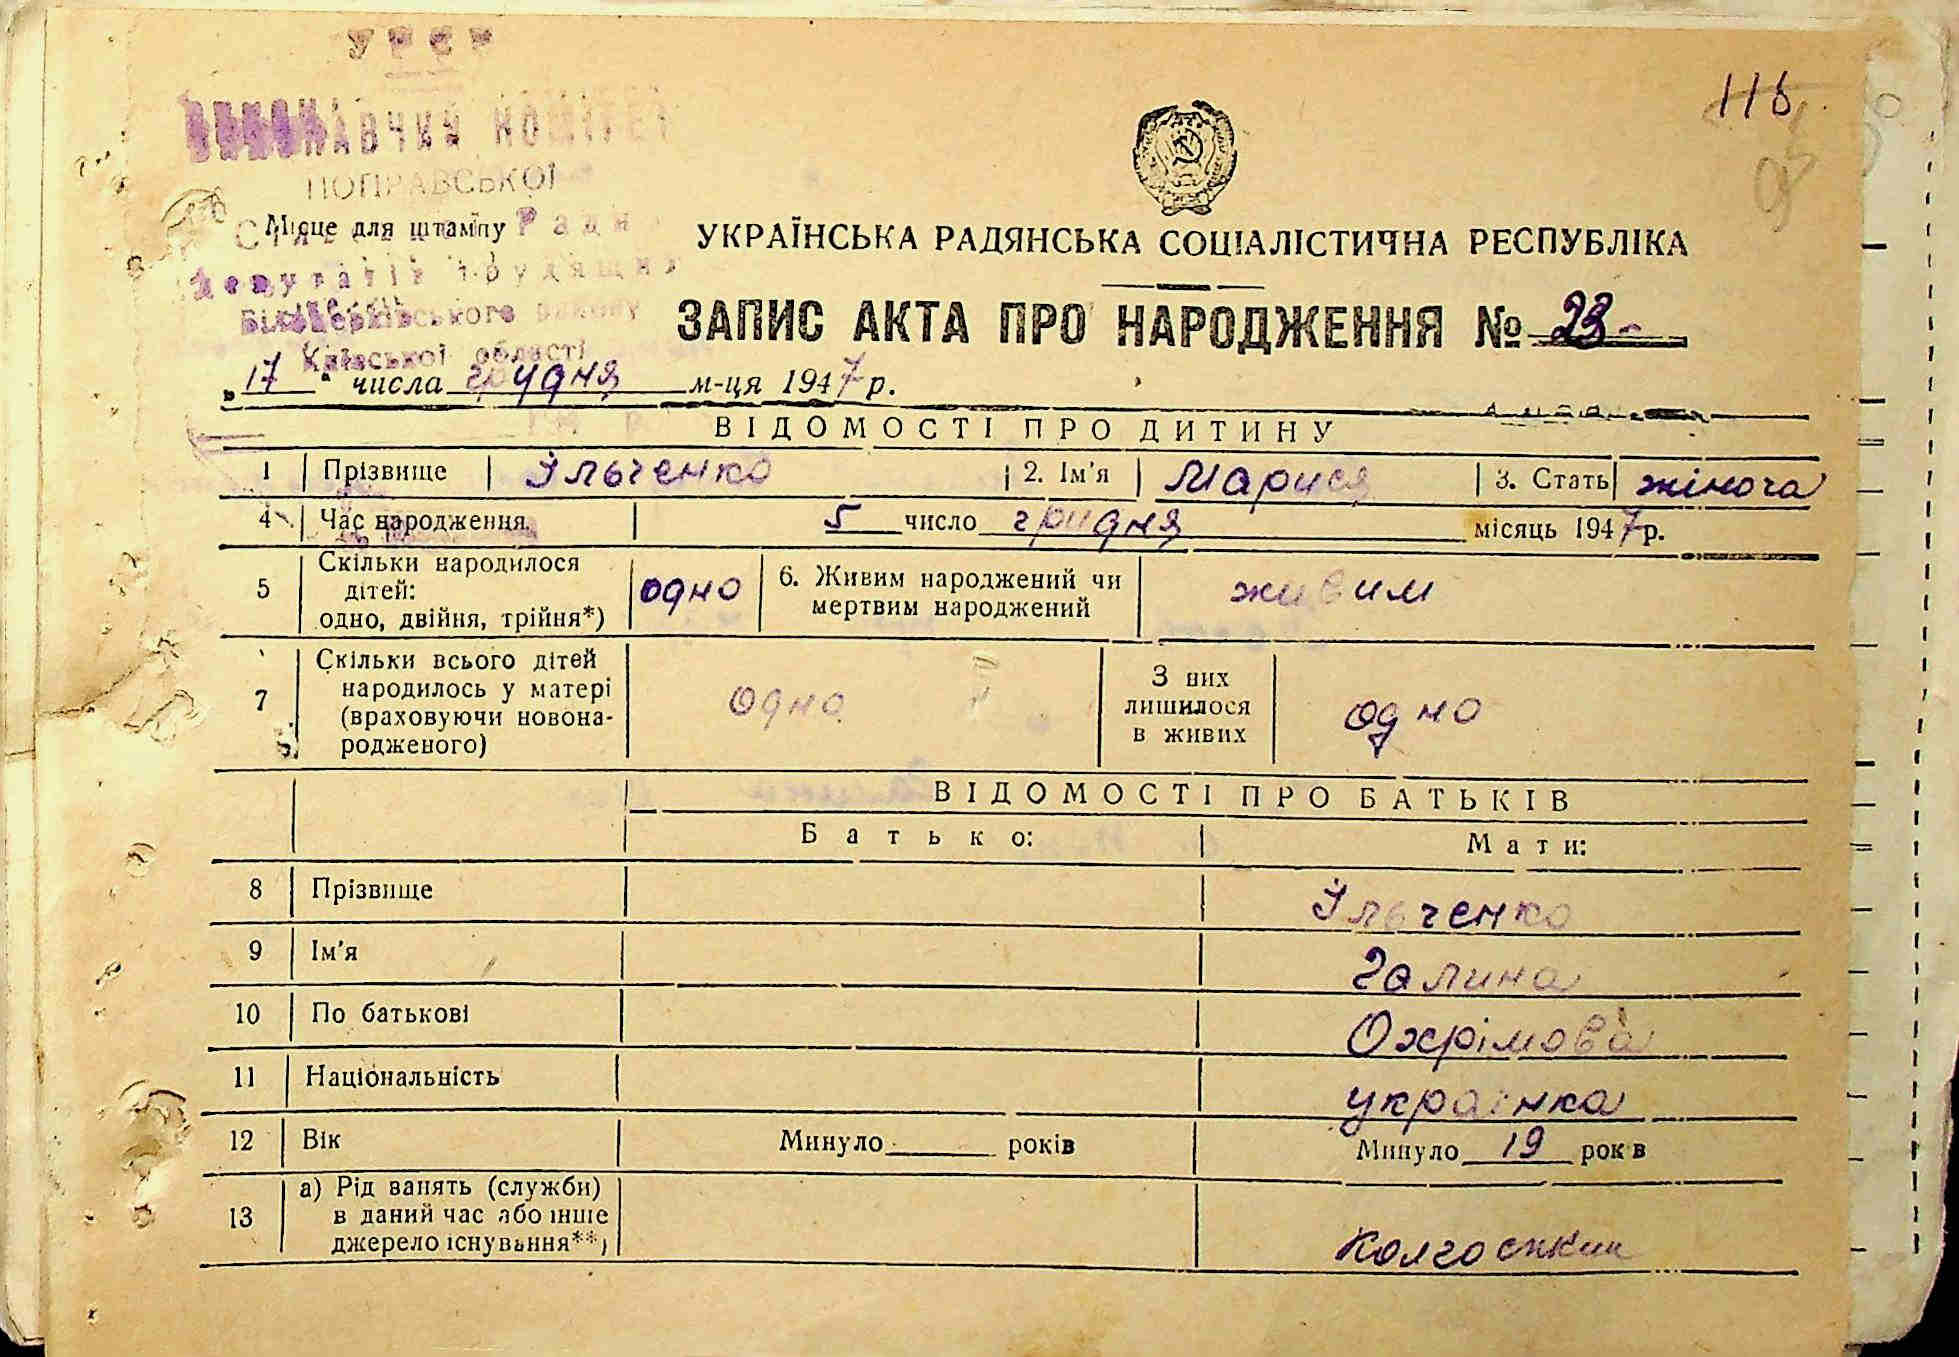 УРСР
ВИКОНАВЧИЙ КОМІТЕТ
ПОПРАВСЬКОЇ
116
95
Місце для штампу
Сільської Ради
депутатів трудящих
Білоцерківського району
Київської області
УКРАЇНСЬКА РАДЯНСЬКА СОЦІАЛІСТИЧНА РЕСПУБЛІКА
ЗАПИС АКТА ПРО НАРОДЖЕННЯ № 23
„17“ числа грудня м-ця 1947 р.
ВІДОМОСТІ ПРО ДИТИНУ
1 Прізвище Ільченко 2. Ім'я Марися 3. Стать жіноча
4 Час народження 5 число грудня місяць 1947 р.
5 Скільки народилося дітей: одно, двійня, трійня*) одно 6. Живим народжений чи мертвим народжений живим
7 Скільки всього дітей народилось у матері (враховуючи новона-родженого) одно З них лишилося в живих одно
ВІДОМОСТІ ПРО БАТЬКІВ
Батько: Мати:
8 Прізвище Ільченко
9 Ім'я Галина
10 По батькові Охрімова
11 Національність українка
12 Вік Минуло років Минуло 19 років
13 а) Рід занять (служби) в даний час або інше джерело існування**)